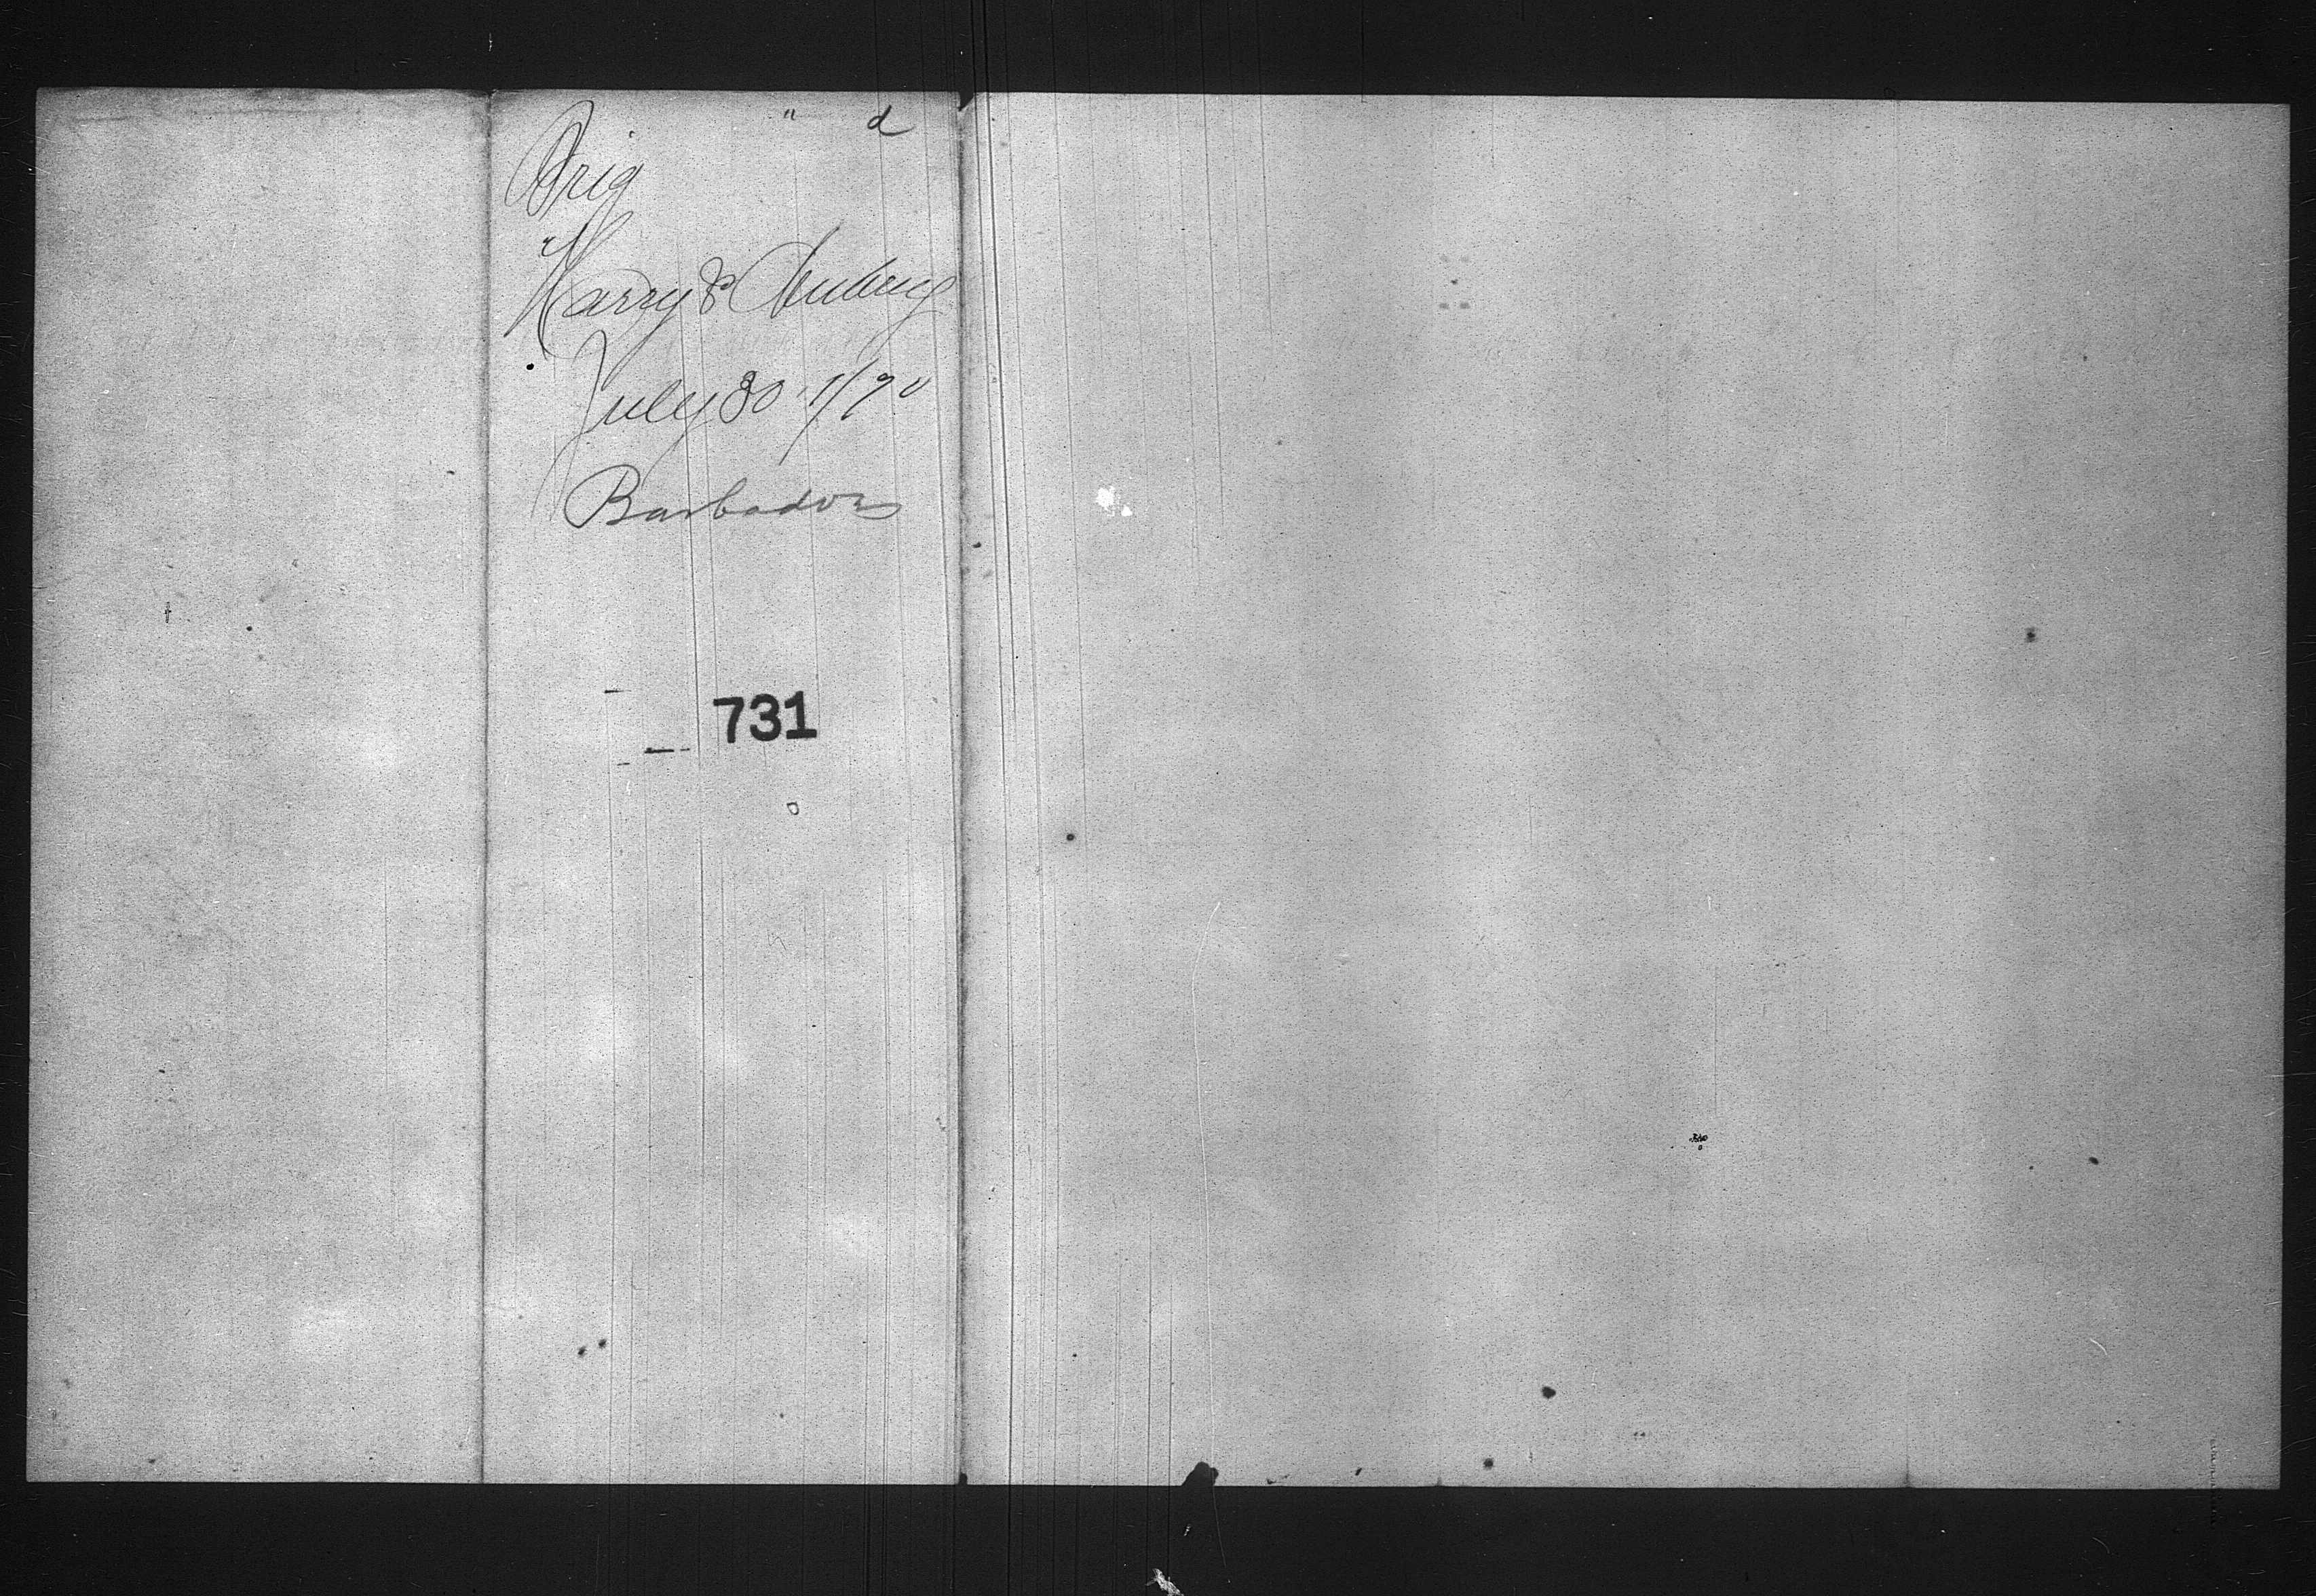 d
Brig
Harry & Aubrey
July 30 1/90
Barbados
731